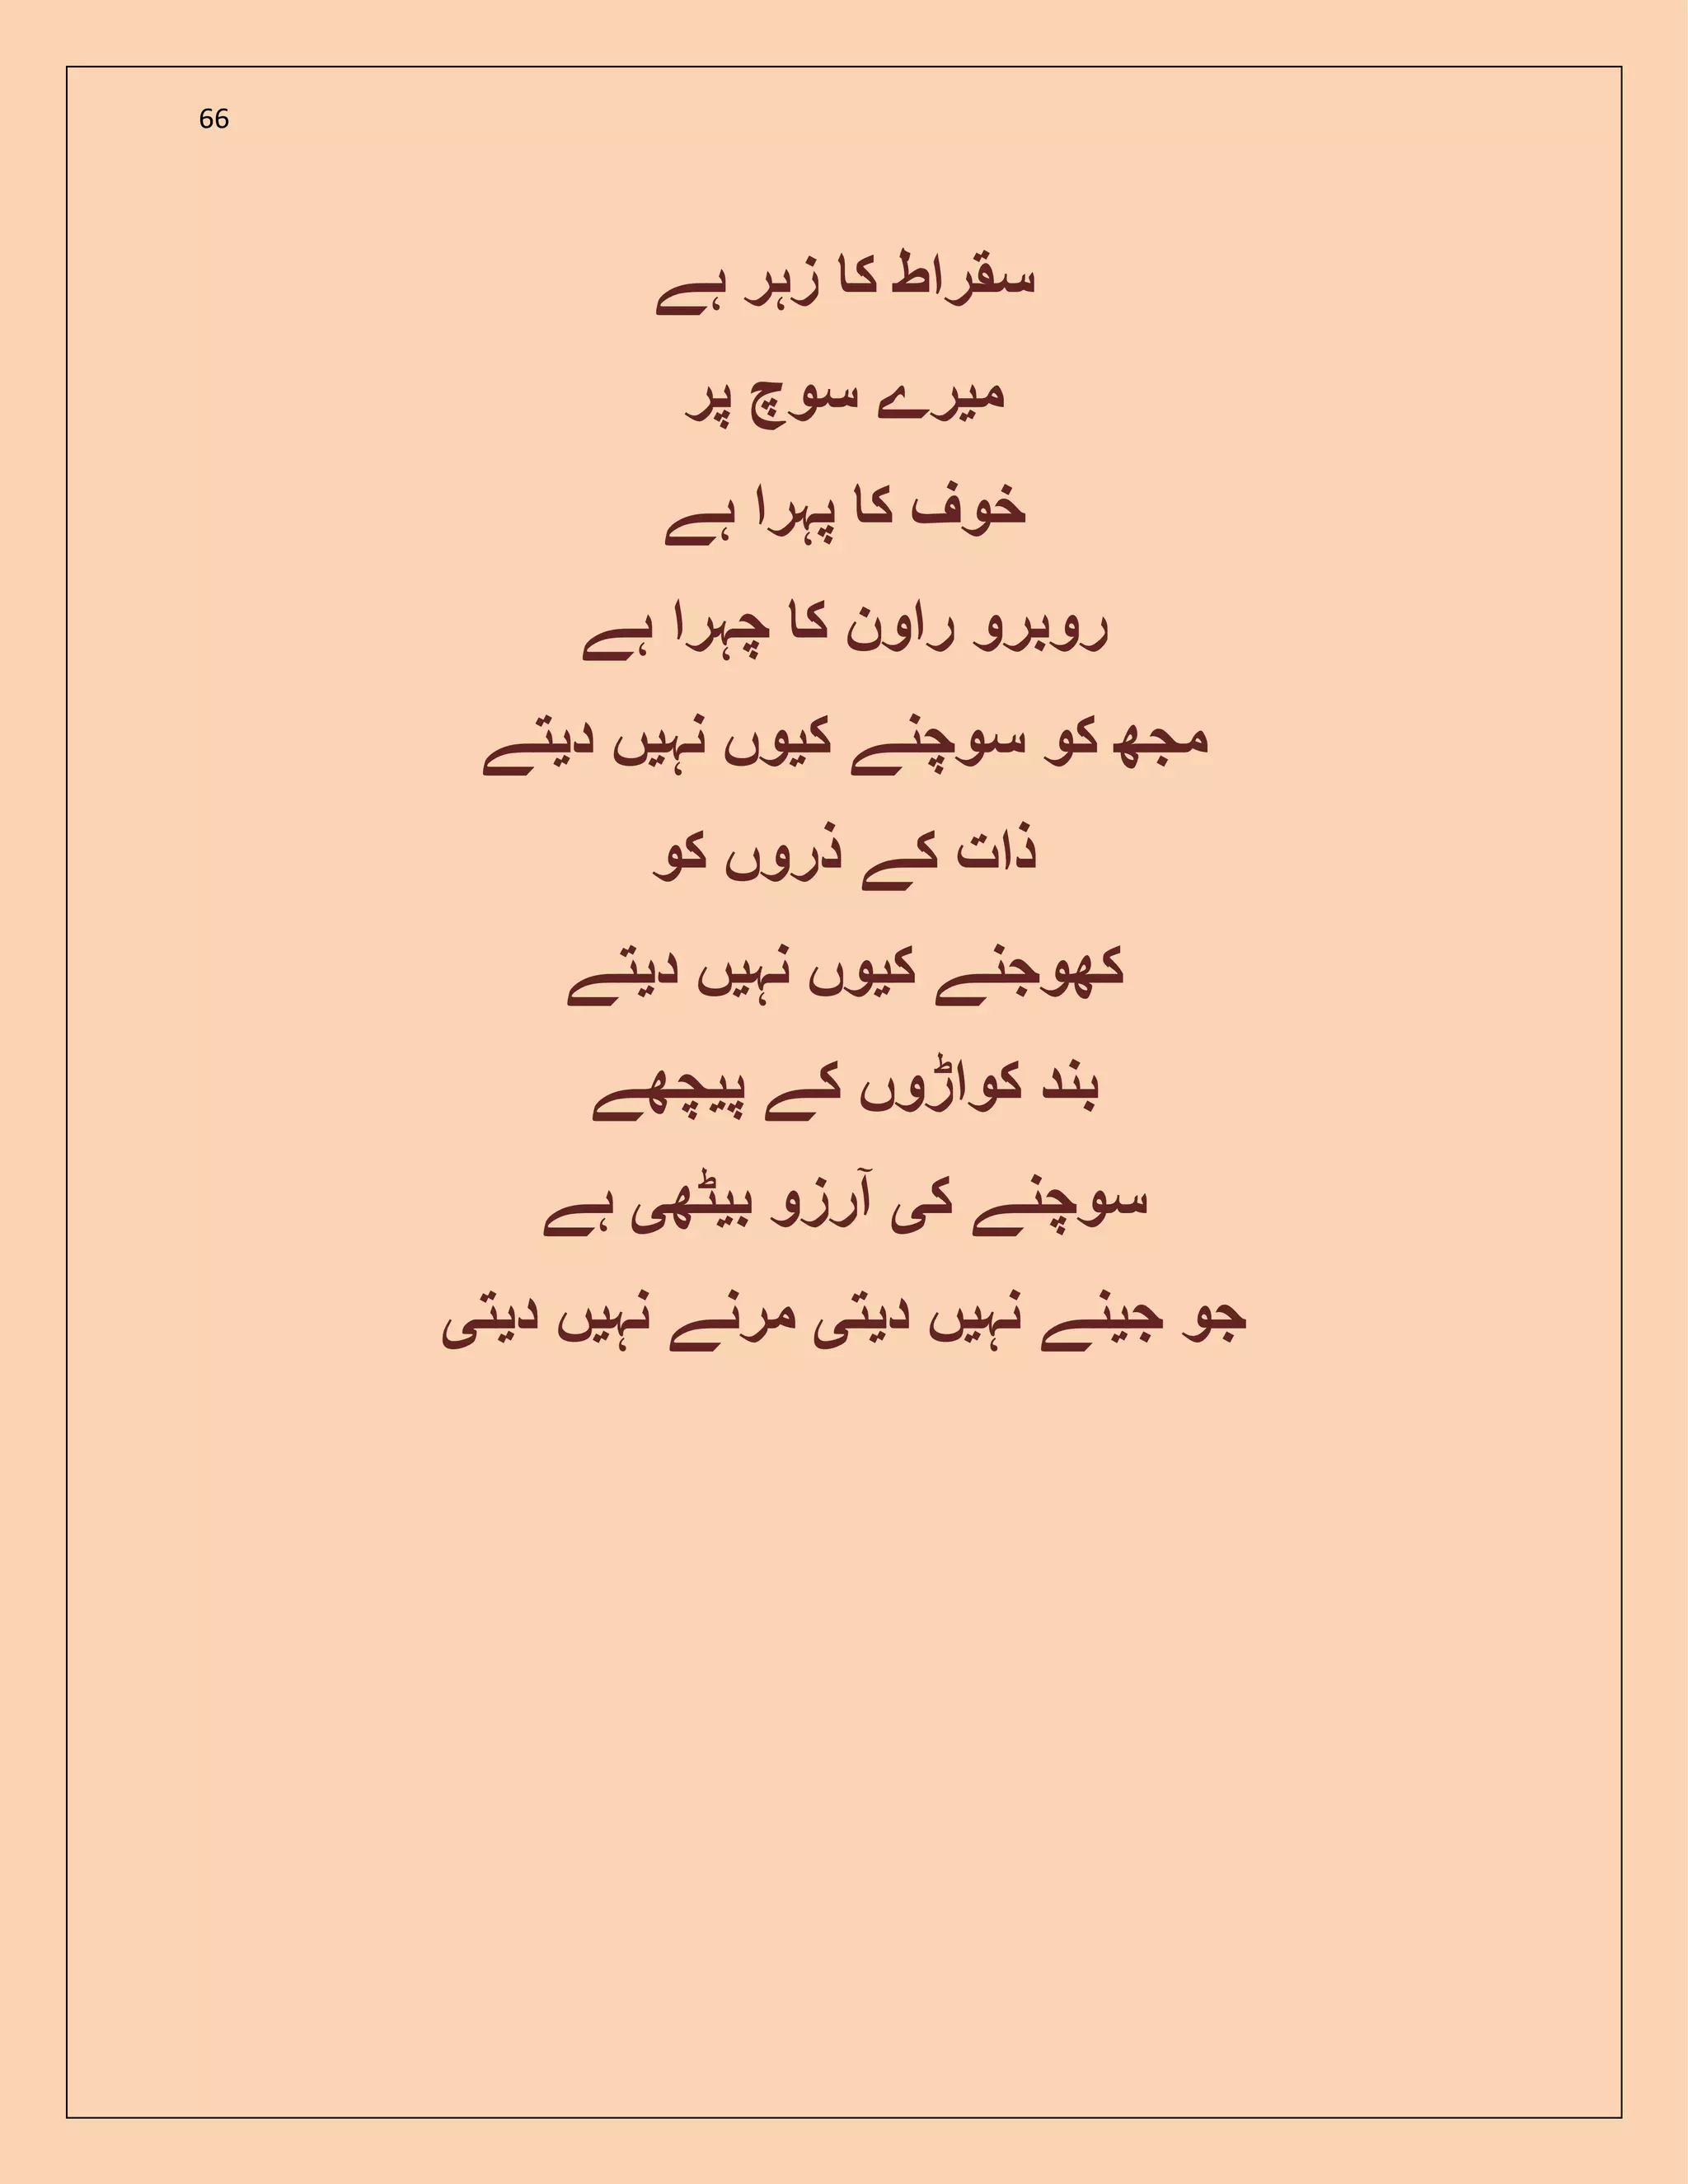 66
سقراط کا زہر ہے
میرے سوچ پر
خوف کا پہرا ہے
روبرو راون کا چہرا ہے
مجھ کو سوچنے کیوں نہیں دیتے
ذات کے ذروں کو
کھوجنے کیوں نہیں دیتے
بند کواڑوں کے پیچھے
سوچنے کی آرزو بیٹھی ہے
جو جینے نہیں دیتی مرنے نہیں دیتی